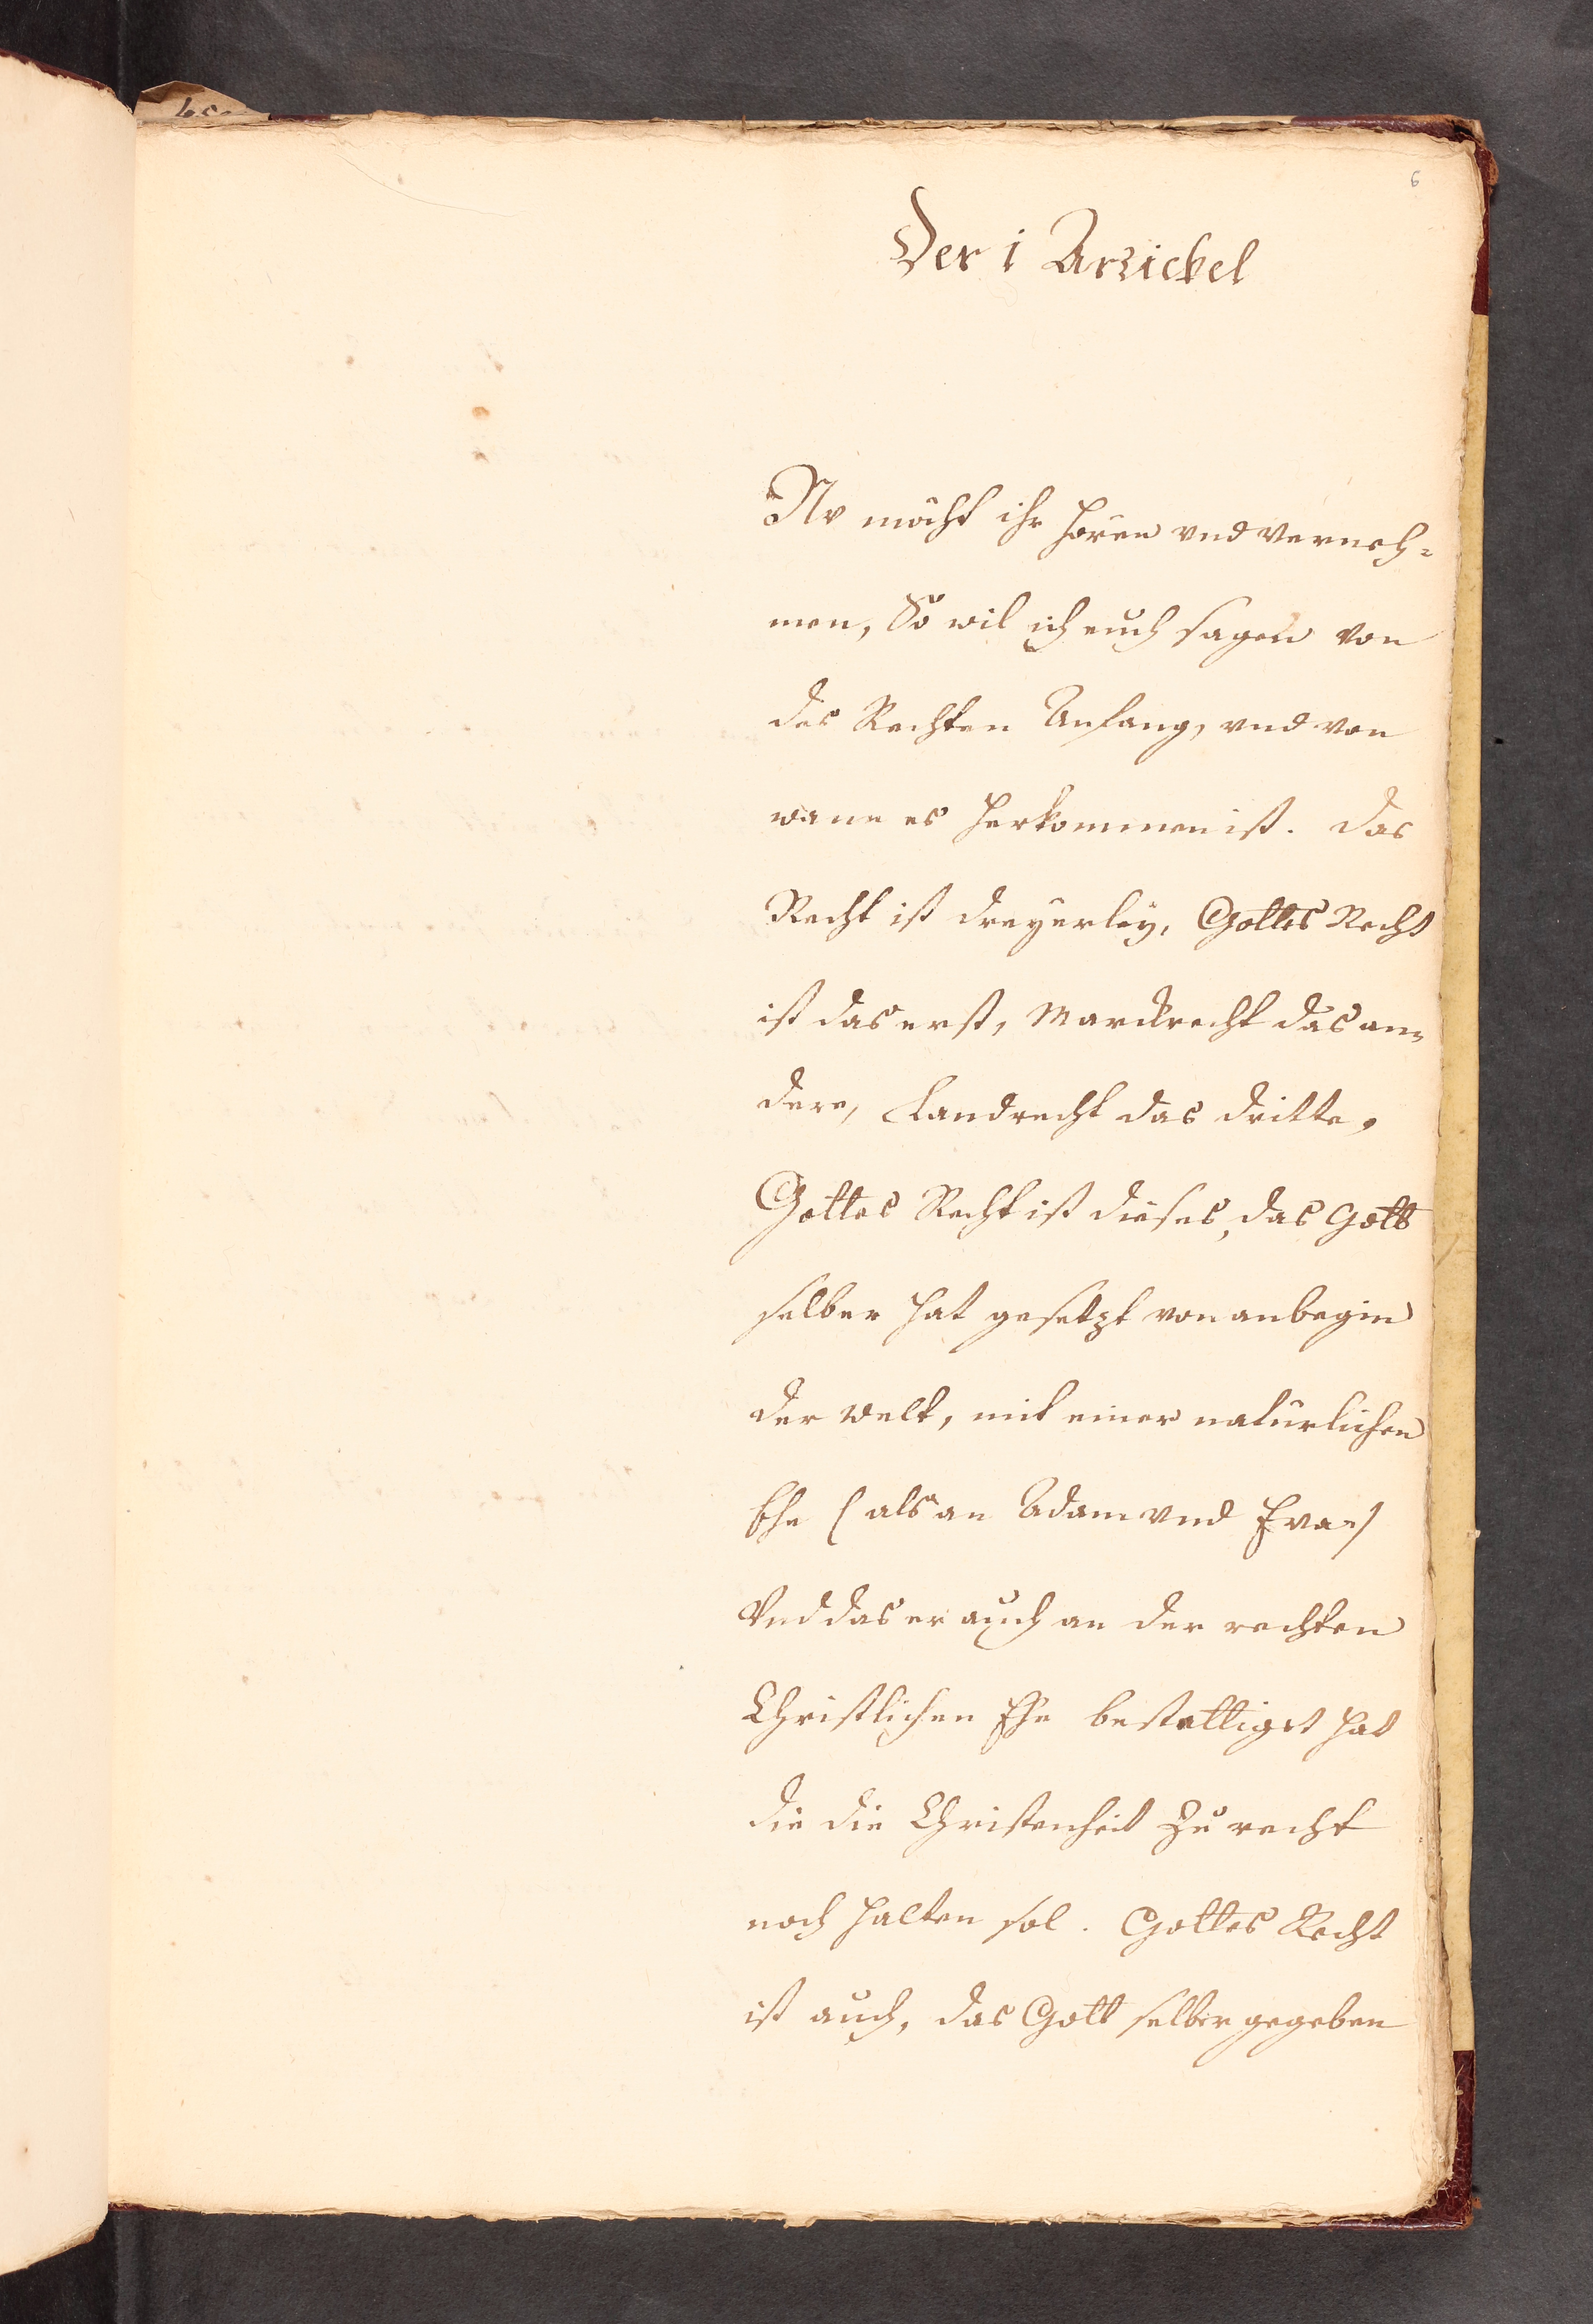 6
Der i Artickel
Nv möcht ihr horen vnd verneh=
men, So wil ich euch sagen von
des Rechten Anfang, vnd von
wane es herkommen ist. Das
Recht ist dreyerley, Gottes Recht
ist das erst, Marcktrecht das an=
dere, Landrecht das dritte,
Gottes Recht ist dieses, das Gott
selber hat gesetzt von anbegin
der welt, mit einer natürlichen
Ehe (als an Adam vnd Eva=)
Vnd das er auch an der rechten
Christlichen Ehe bestattiget hat
die die Christenheit zu recht
noch halten sol. Gottes Recht
ist auch, das Gott selber gegeben